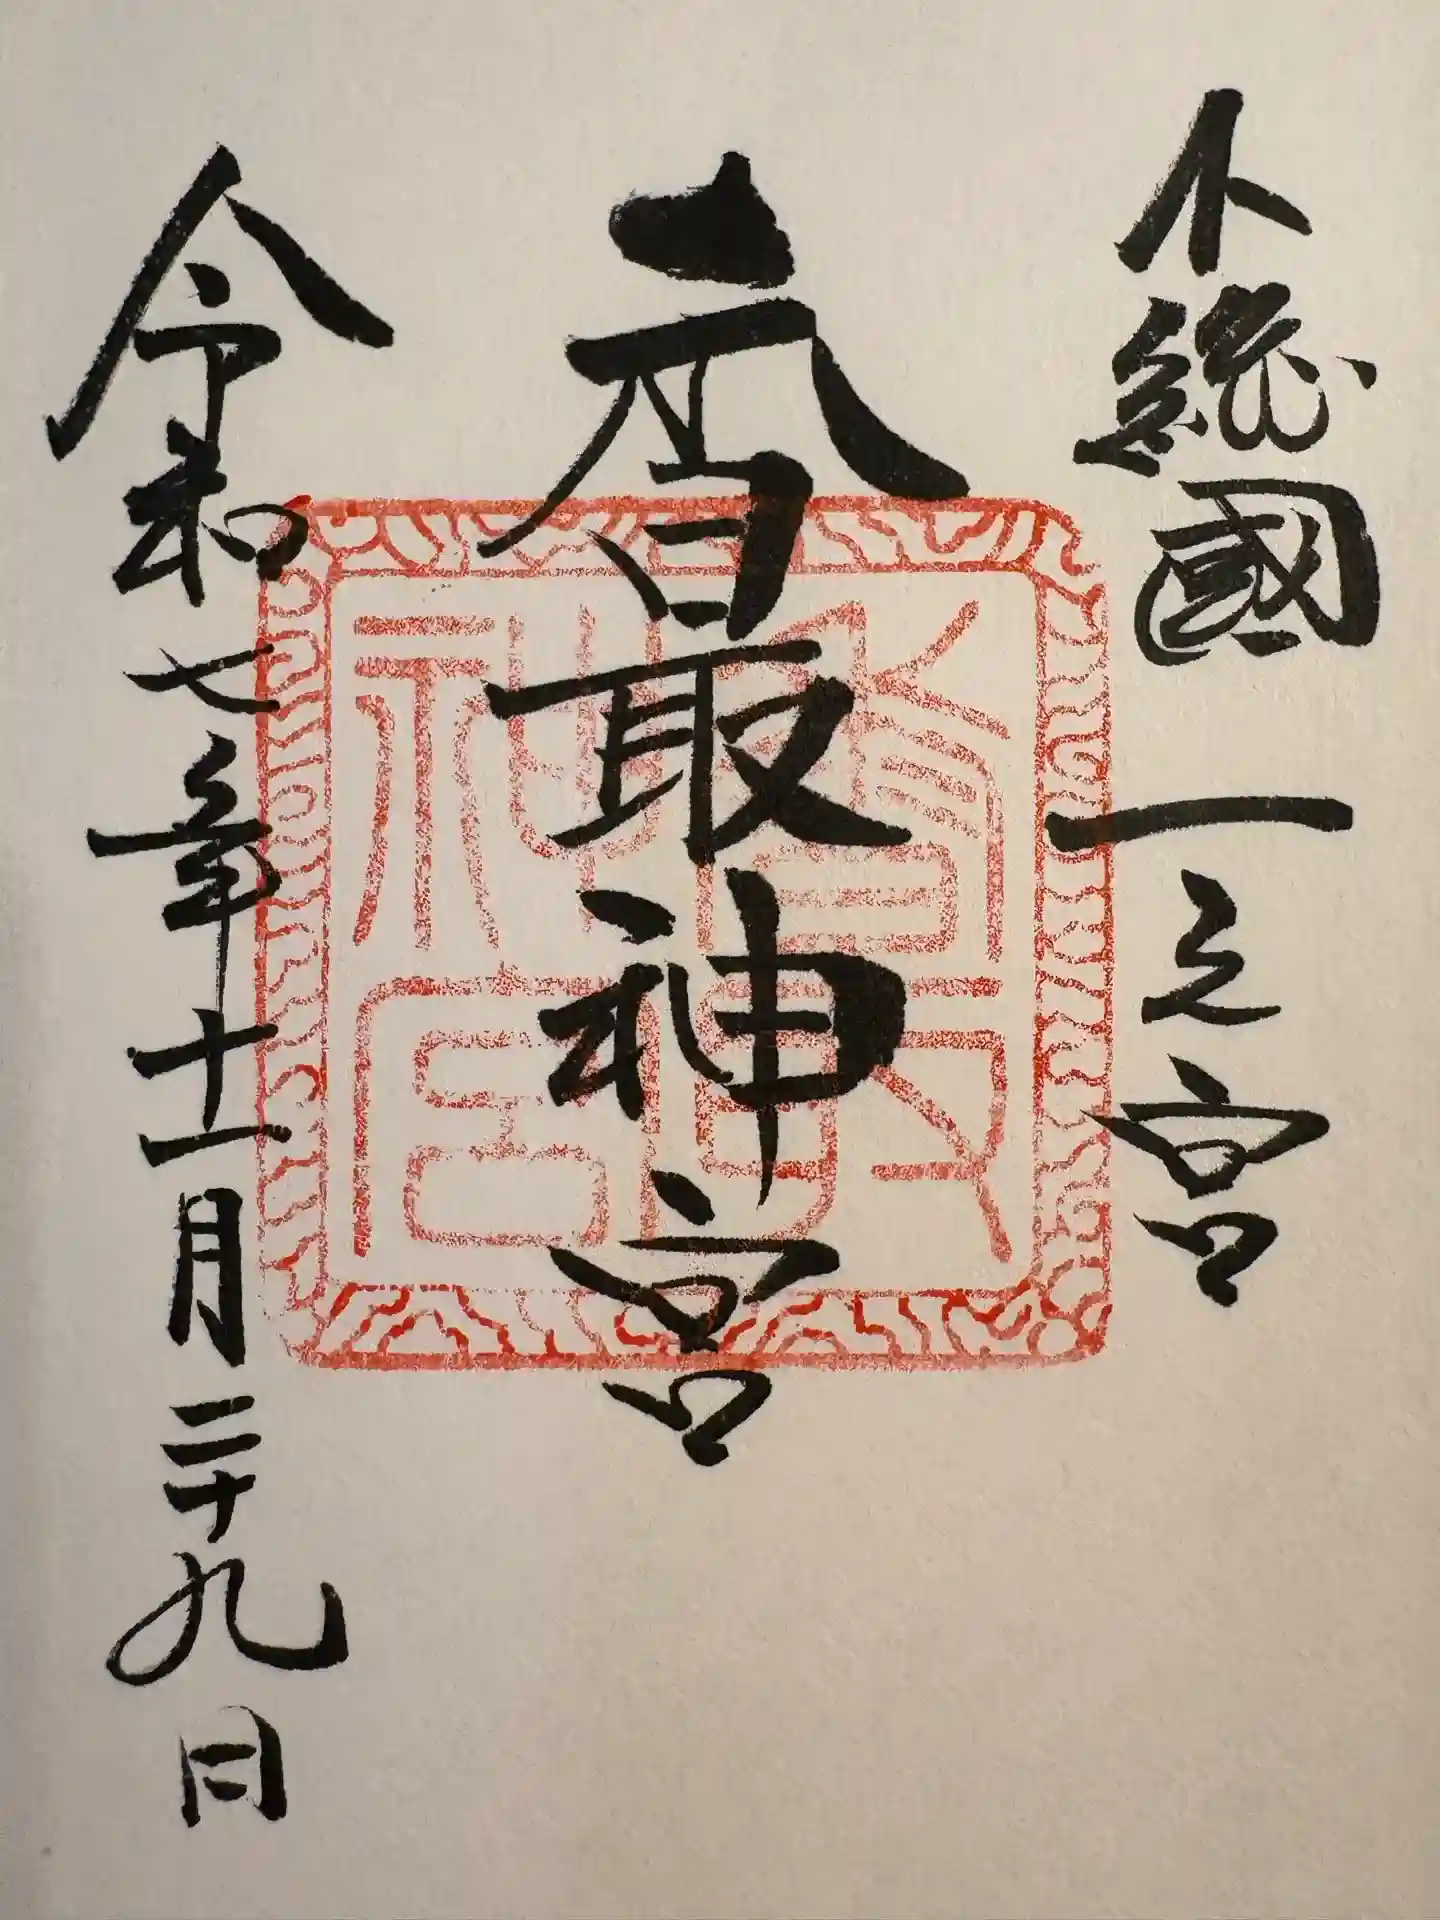 下總國一之宮
香取神宮
令和七年十一月二十九日
香取神宮